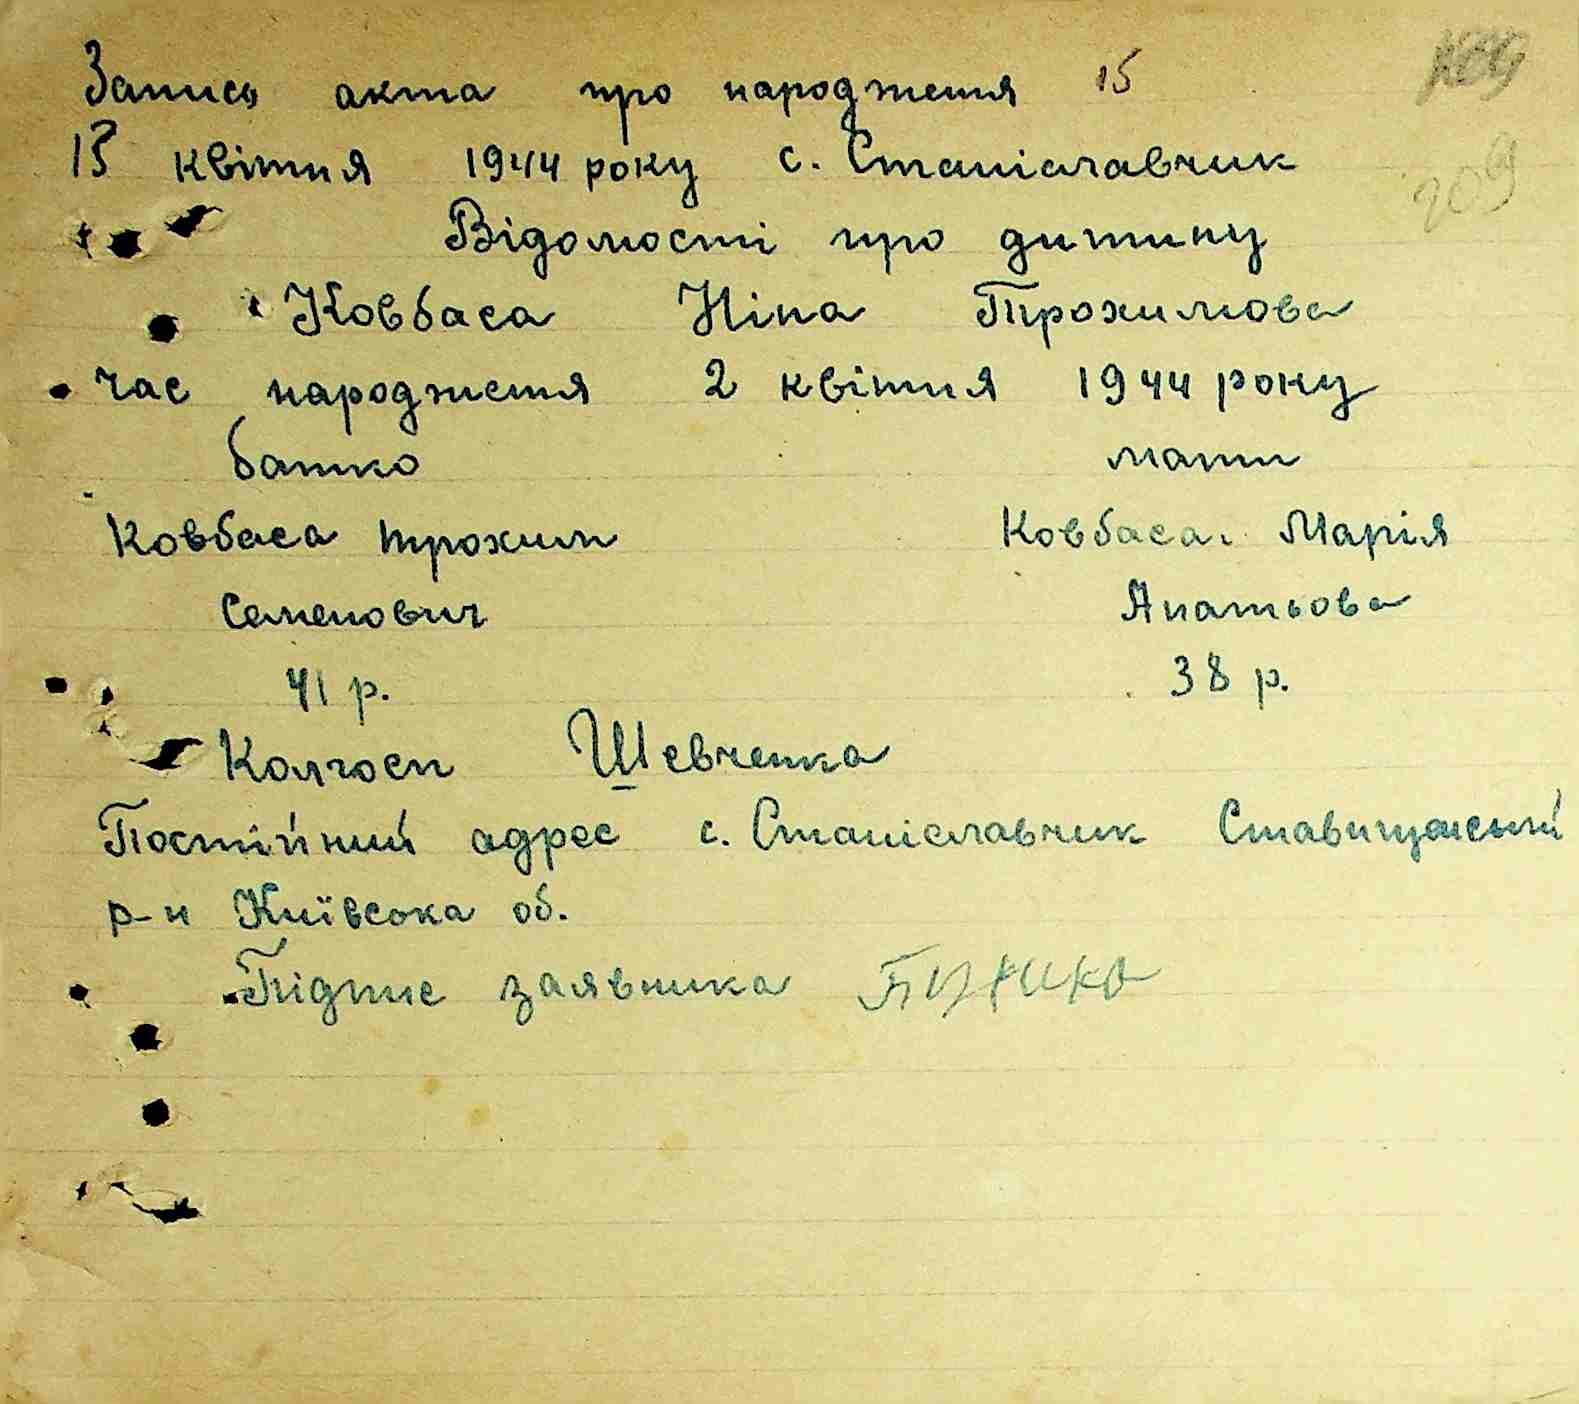 Запись акта про народження 15
209
15 квітня 1944 року с. Станіславчик
Відомості про дитину
Ковбаса Ніна Трохимова
час народження 2 квітня 1944 року
батко мати
Ковбаса Трохим Ковбаса Марія
Семенович Ипатьова
41 р. 38 р.
Колгосп Шевченка
Постійний адрес с. Станіславчик Ставищанський
р-н Київсока об.
Підпис заявника